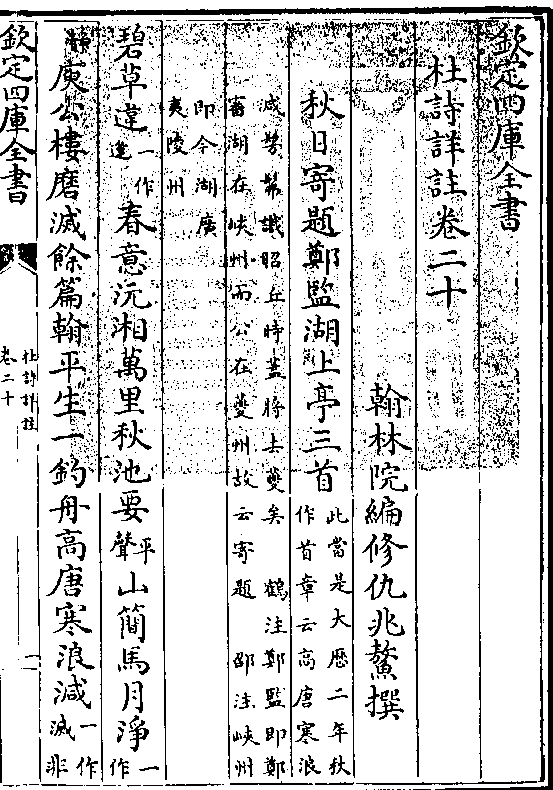 欽定四庫全書
杜詩詳註卷二十
翰林院編修仇兆鰲撰
秋日寄題鄭監湖上亭三首
此當是大厯二年秋
作首章云高唐寒浪
減髣髴識昭丘時蓋將去夔矣 鶴注鄭監即鄭
審湖在峽州而公在夔州故云寄題 邵注峽州
即今湖廣
夷陵州
碧草違一作逢春意沅湘萬里秋池要平聲山簡馬月淨一作
靜庾公樓磨滅餘篇翰平生一釣舟高唐寒浪減一作滅非
欽定四庫全書
杜詩詳註
卷二十
一